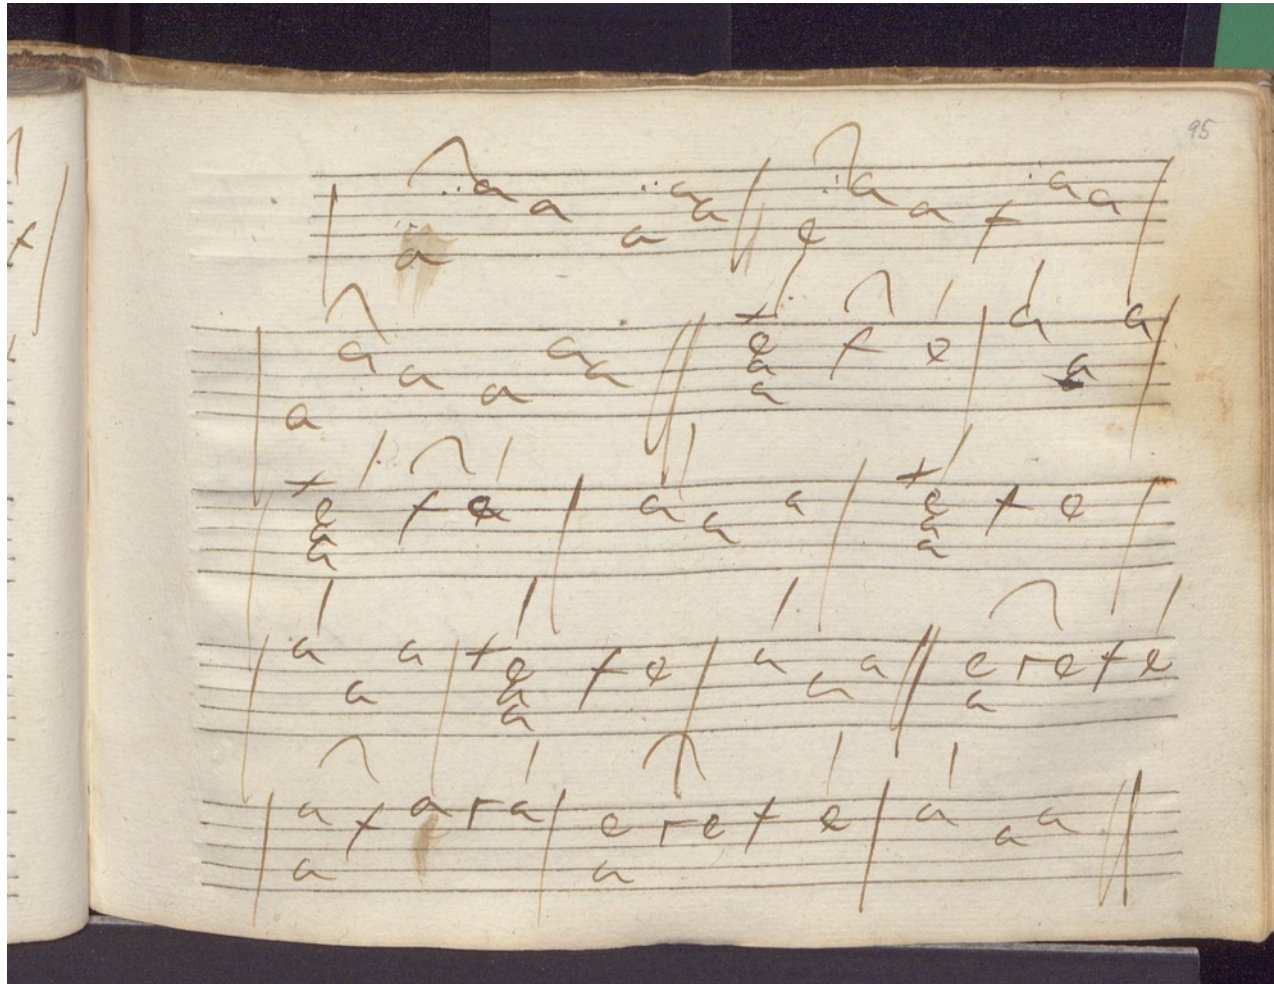 95
a a a a a a e a a r a a
a a a a a a e a a r e a a a
e a a r e a a a e a a r e
a a a e a a r e a a a e a r e r e
a a r a r a e a r e r e a a a